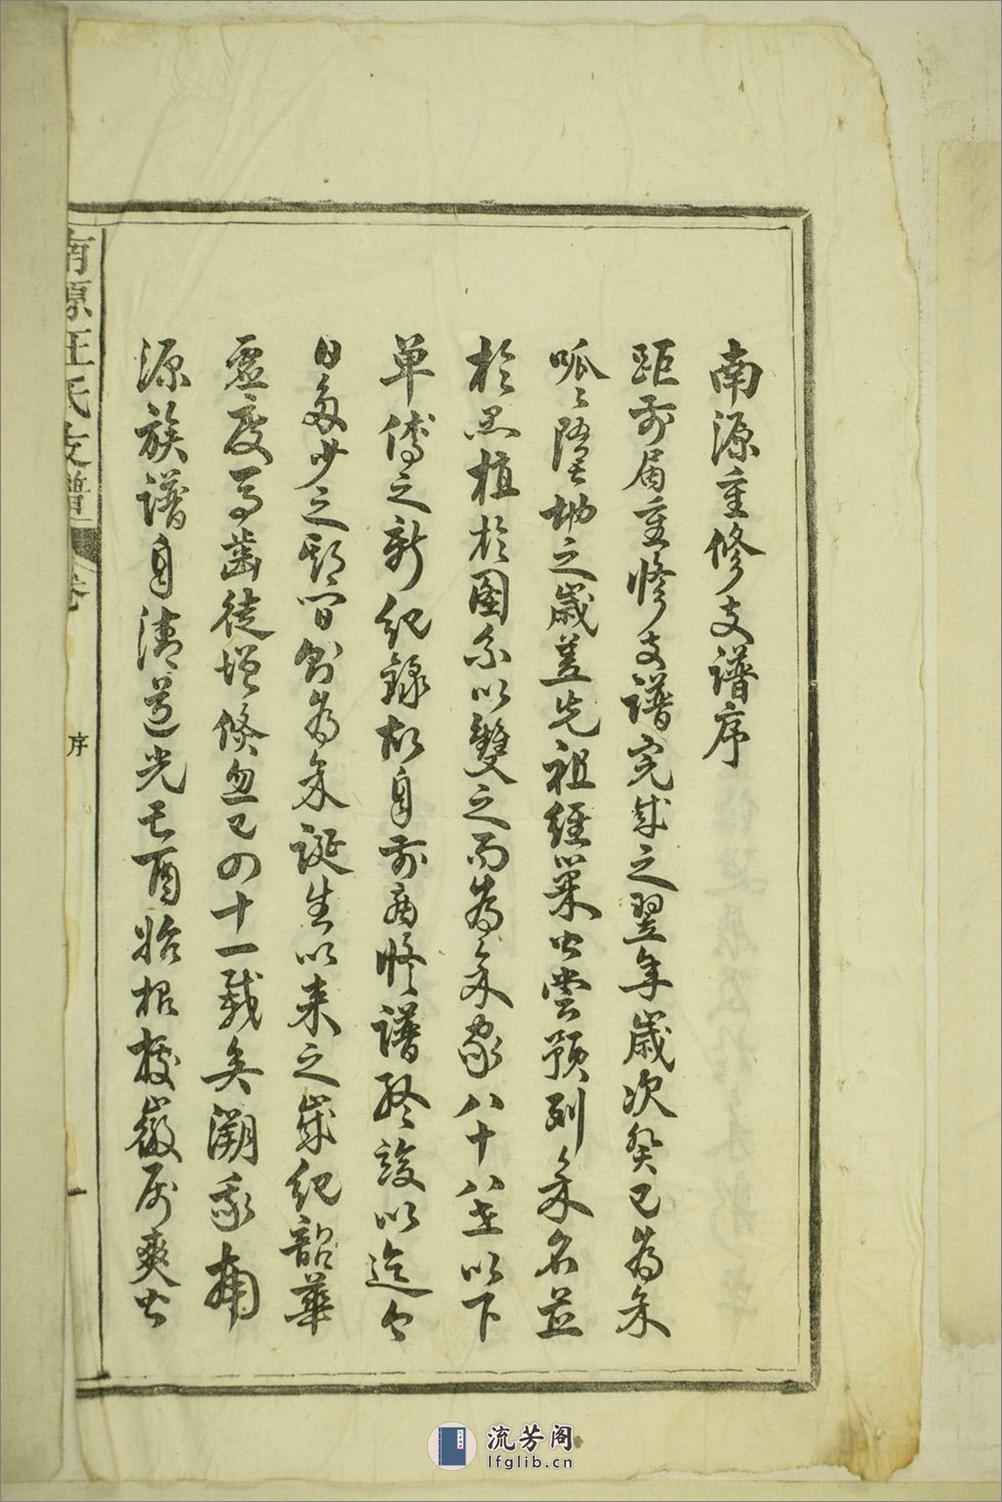 南源重修支譜序
距前屆重修支譜完成之翌年歲次癸巳為余
呱〻墮地之歲蓋先祖經業公嘗預列余名並
於黑植於圖系以雙之而為余家八十八世以下
單傳之新紀錄故自前届修譜告竣以迄今
日多少之期間即為余誕生以來之歲紀韶華
虛度馬齒徒增倏忽已四十一載矣溯我南
源族譜自清道光己酉始根據徽厲爽公
南源汪氏支譜
卷
序
一
流芳阁
lfglib.cn